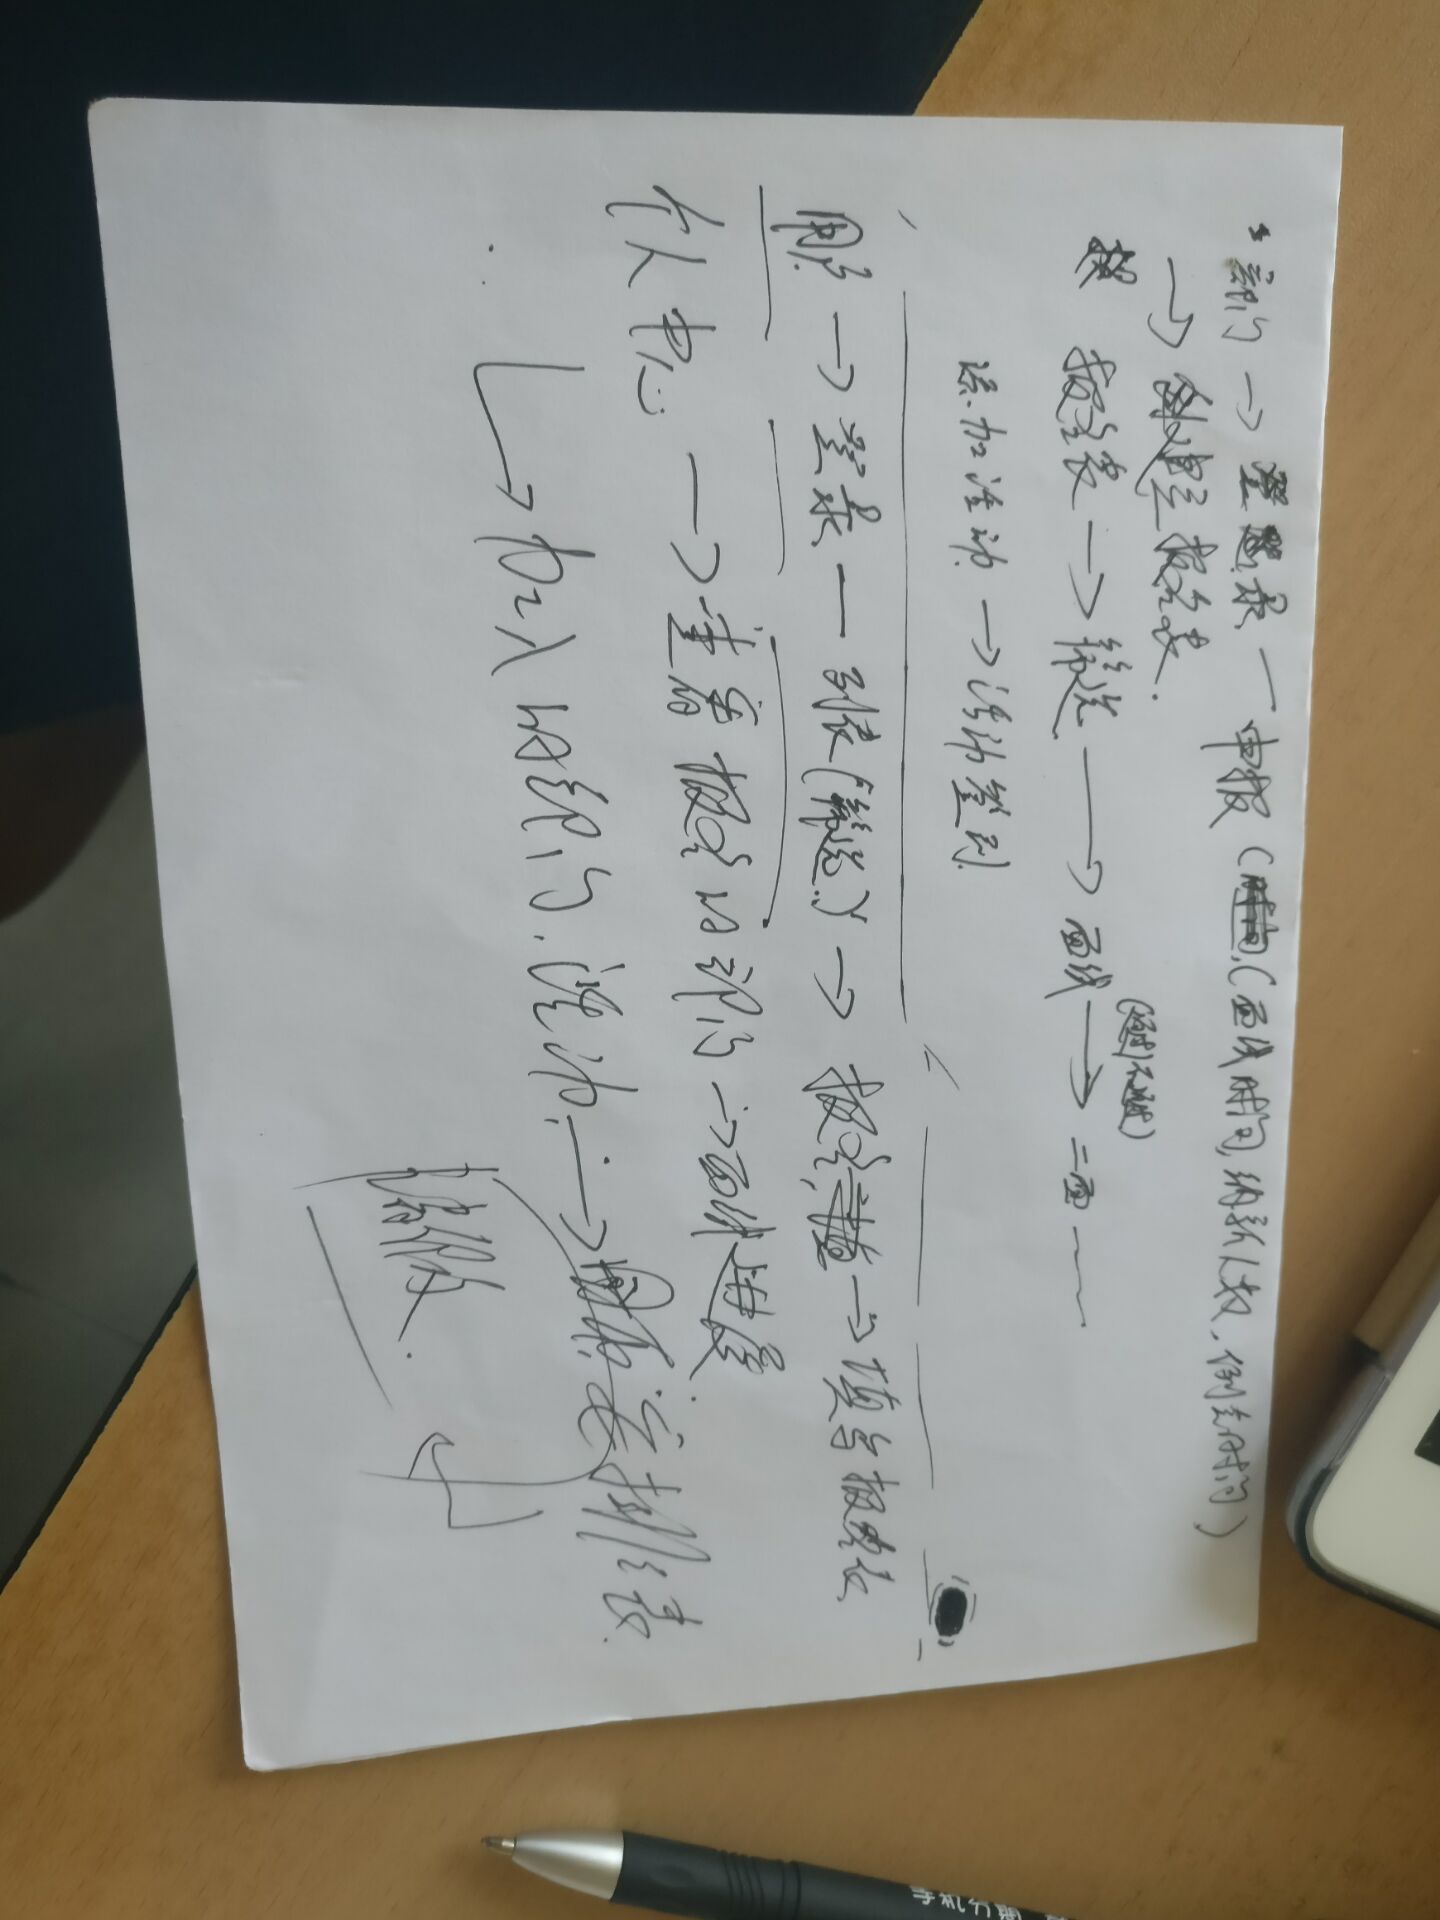 部门 → 登录 — 申报 (面试时间, 纳新人数, 例会时间)
→ 创建报名表.
报名表 → 筛选 → 面试 (通过/不通过) → 二面
添加活动 → 活动签到
用户 → 登录 — 列表(筛选) → 报名 → 填写报名表
个人中心 → 查看报名的部门 → 面试进度.
↳ 加入的部门, 活动, → 安排表.
请假.
手机